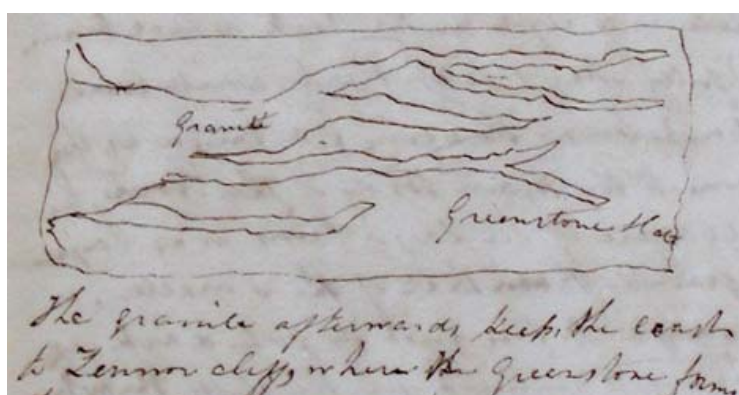 Granite
Greenstone Slate
The granite afterwards keeps the coast
to Zennor cliffs where the Greenstone forms